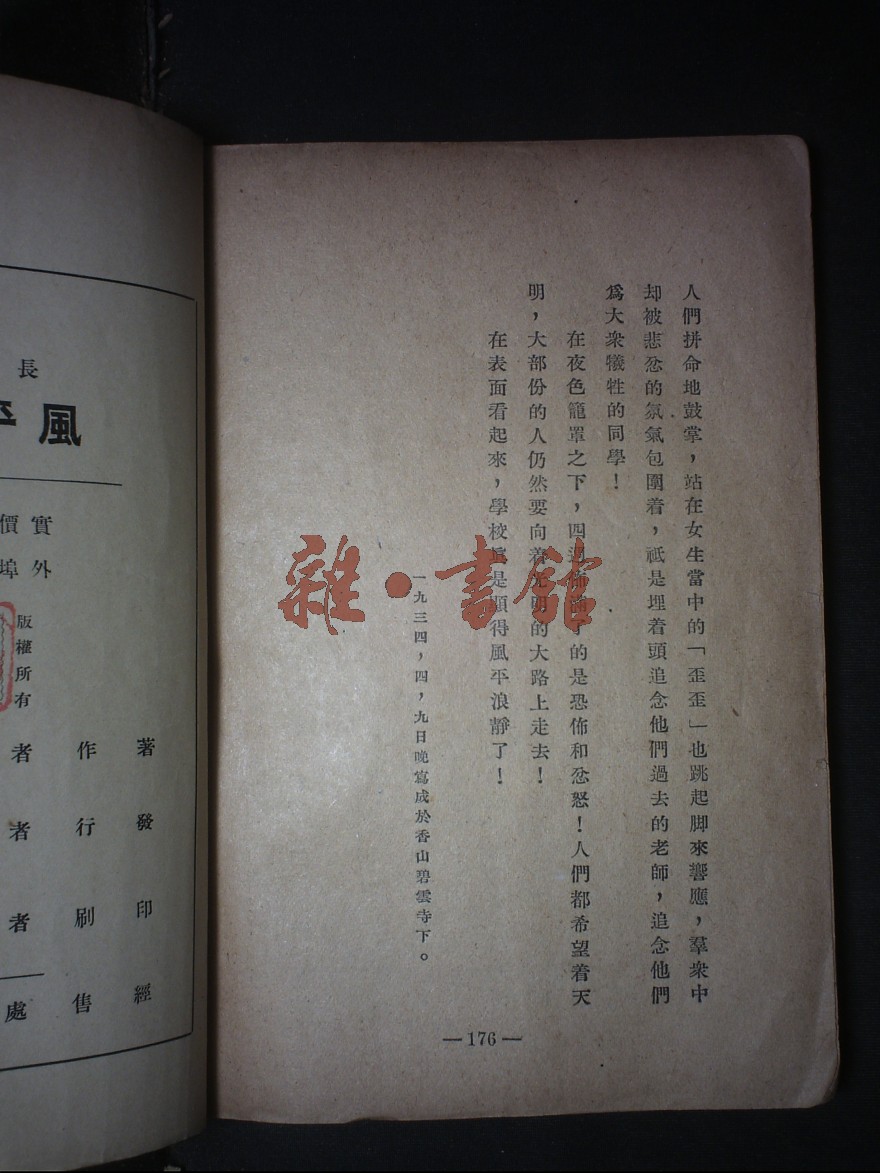 人們拼命地鼓掌，站在女生當中的「歪歪」也跳起脚來響應，羣衆中
却被悲忿的氛氣包圍着，祗是埋着頭追念他們過去的老師，追念他們
爲大衆犧牲的同學！
在夜色籠罩之下，四週佈滿了的是恐佈和忿怒！人們都希望着天
明，大部份的人仍然要向着光明的大路上走去！
在表面看起來，學校是顯得風平浪靜了！
一九三四，四，九日晚寫成於香山碧雲寺下。
—176—
雜·書館
長
風平
實價
外埠
版權所有
著作者
發行者
印刷者
經售處